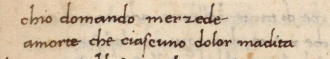 chio domando merzede
amorte che ciascuno dolor madita